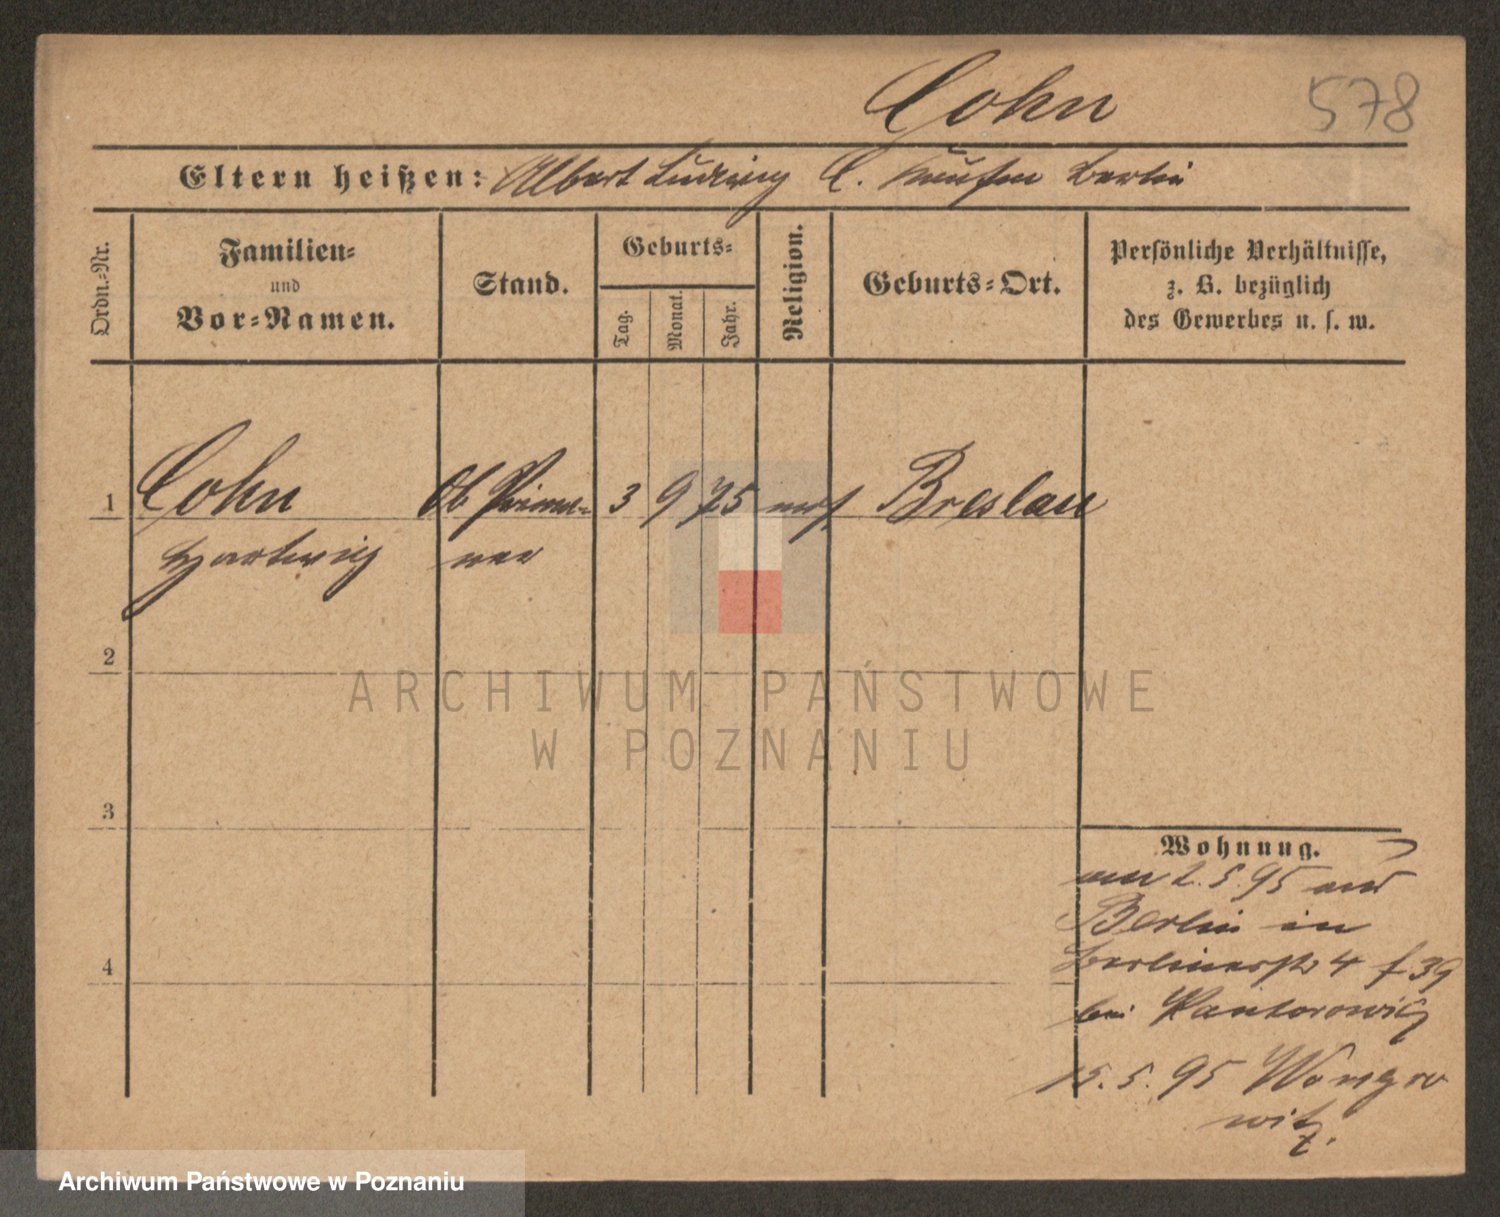 Cohn 578
Eltern heißen: Albert Ludwig C. Kaufm Berlin
Ordn.-Nr.
Familien-
und
Vor-Namen.
Stand.
Geburts-
Tag.
Monat.
Jahr.
Religion.
Geburts-Ort.
Persönliche Verhältnisse,
z. B. bezüglich
des Gewerbes u. s. w.
1 Cohn Ob Prima- 3 9 75 mos Breslau
Hartwig ner
2
ARCHIWUM PAŃSTWOWE
W POZNANIU
3
Wohnung.
am 2.5.95 aus
Berlin in
Berlinerstr 4 f 39
bei Kantorowicz
4
15.5.95 Wongro
witz.
Archiwum Państwowe w Poznaniu